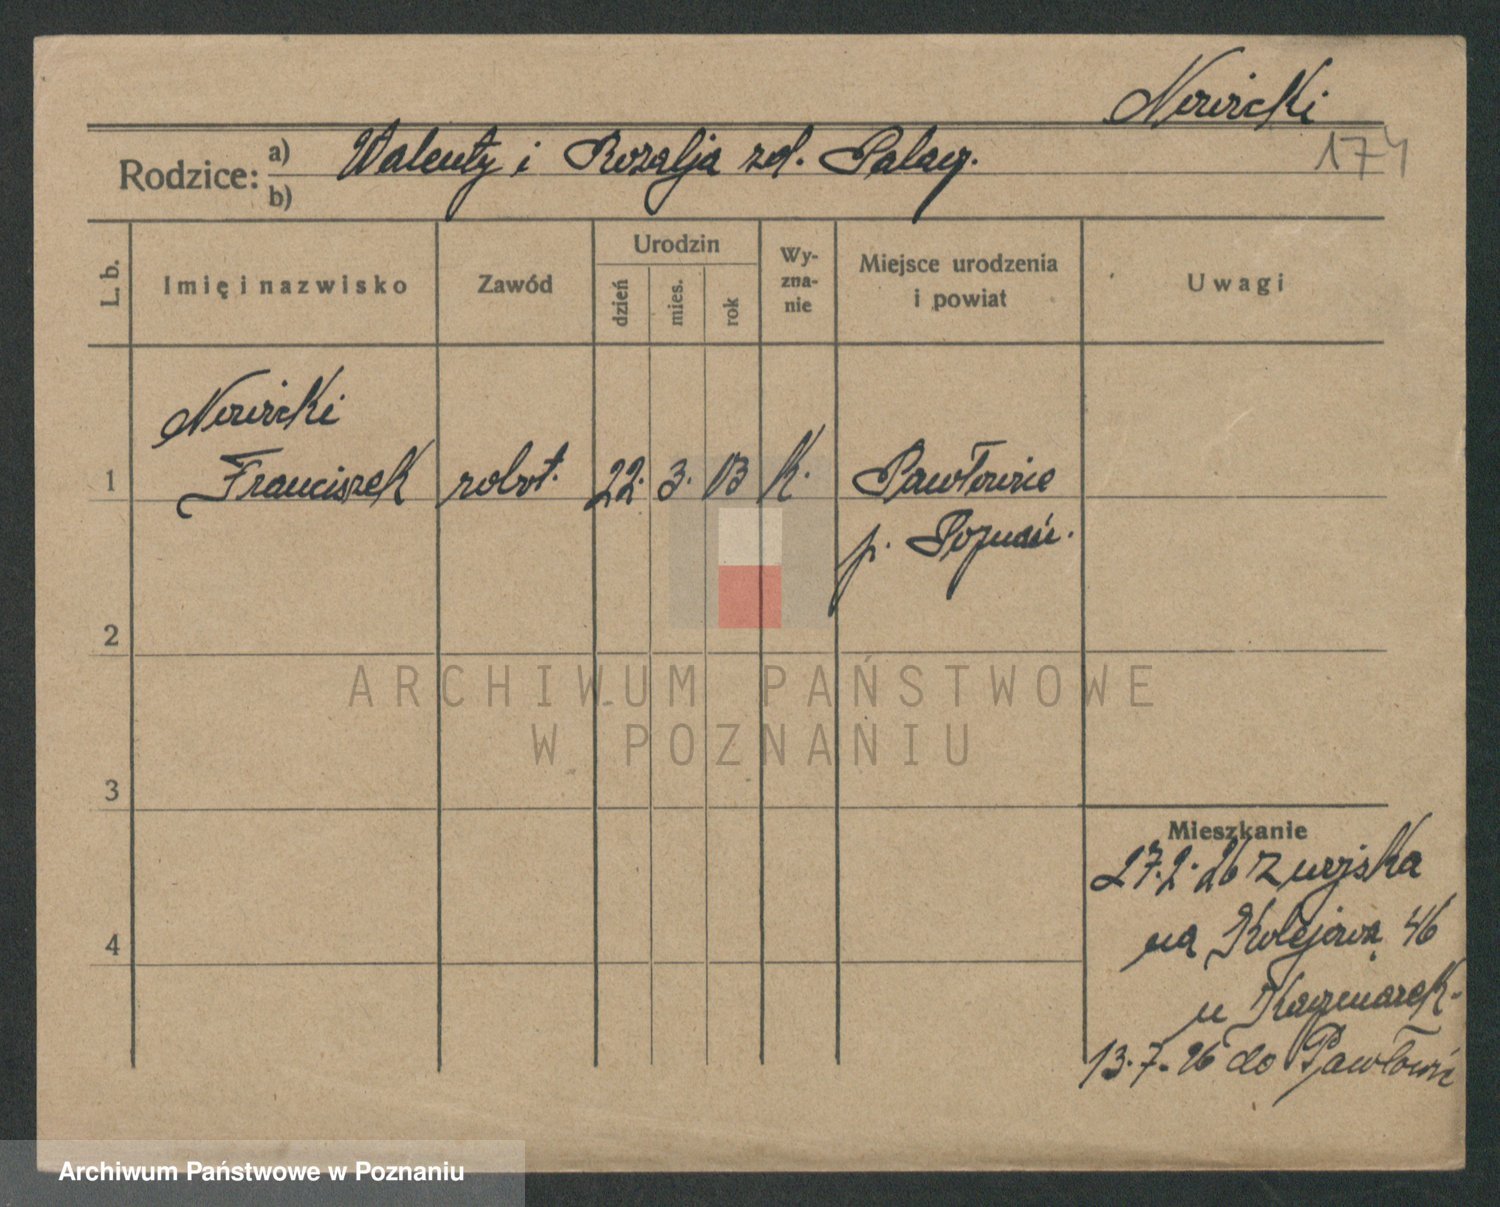 Nowicki
174
Rodzice: a) Walenty i Rozalja zd. Palacz.
b)
L. b.
Imię i nazwisko
Zawód
Urodzin
dzień
mies.
rok
Wy-
zna-
nie
Miejsce urodzenia
i powiat
Uwagi
Nowicki
1 Franciszek robot. 22. 3. 03 k. Pawłowice
p. Poznań.
2
3
4
ARCHIWUM PAŃSTWOWE
W POZNANIU
Mieszkanie
27.2.26 z wojska
na Kolejową 46
u Kaczmarek.
13.7.26 do Pawłowic
Archiwum Państwowe w Poznaniu